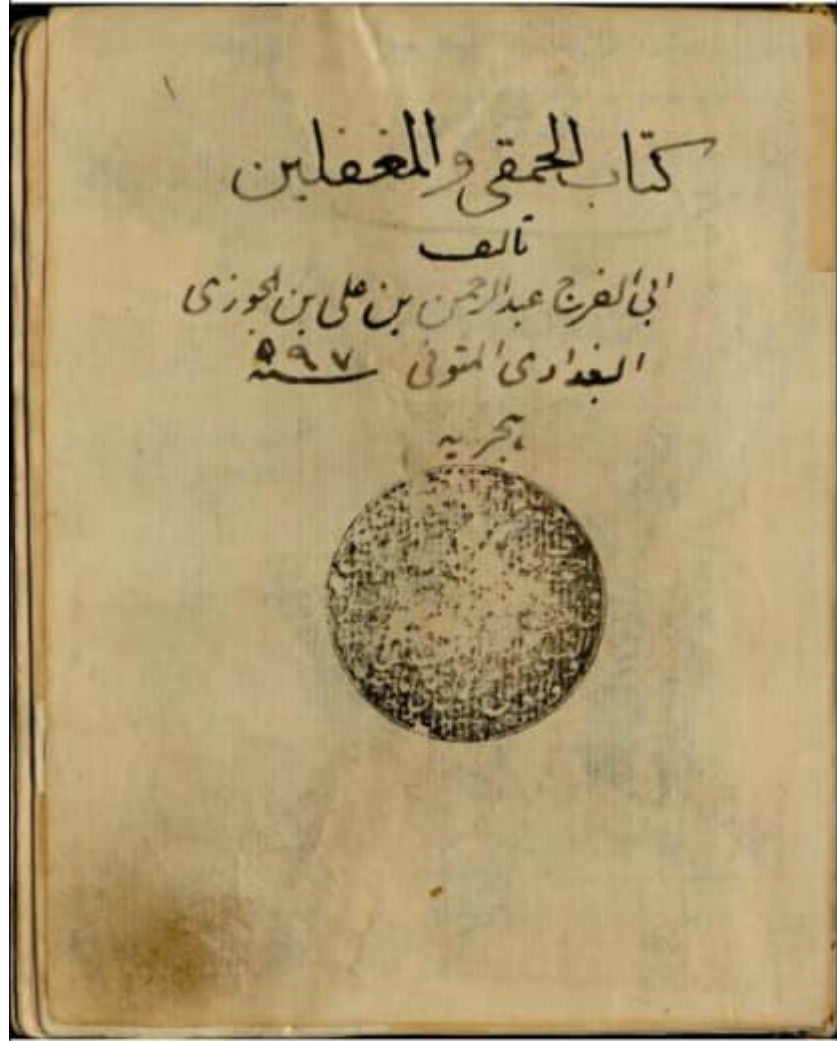 كتاب الحمقى والمغفلين
تالف
ابى الفرج عبدالرحمن بن على بن الجوزى
البغدادى المتوفى سنه ٥٩٧
هجريه